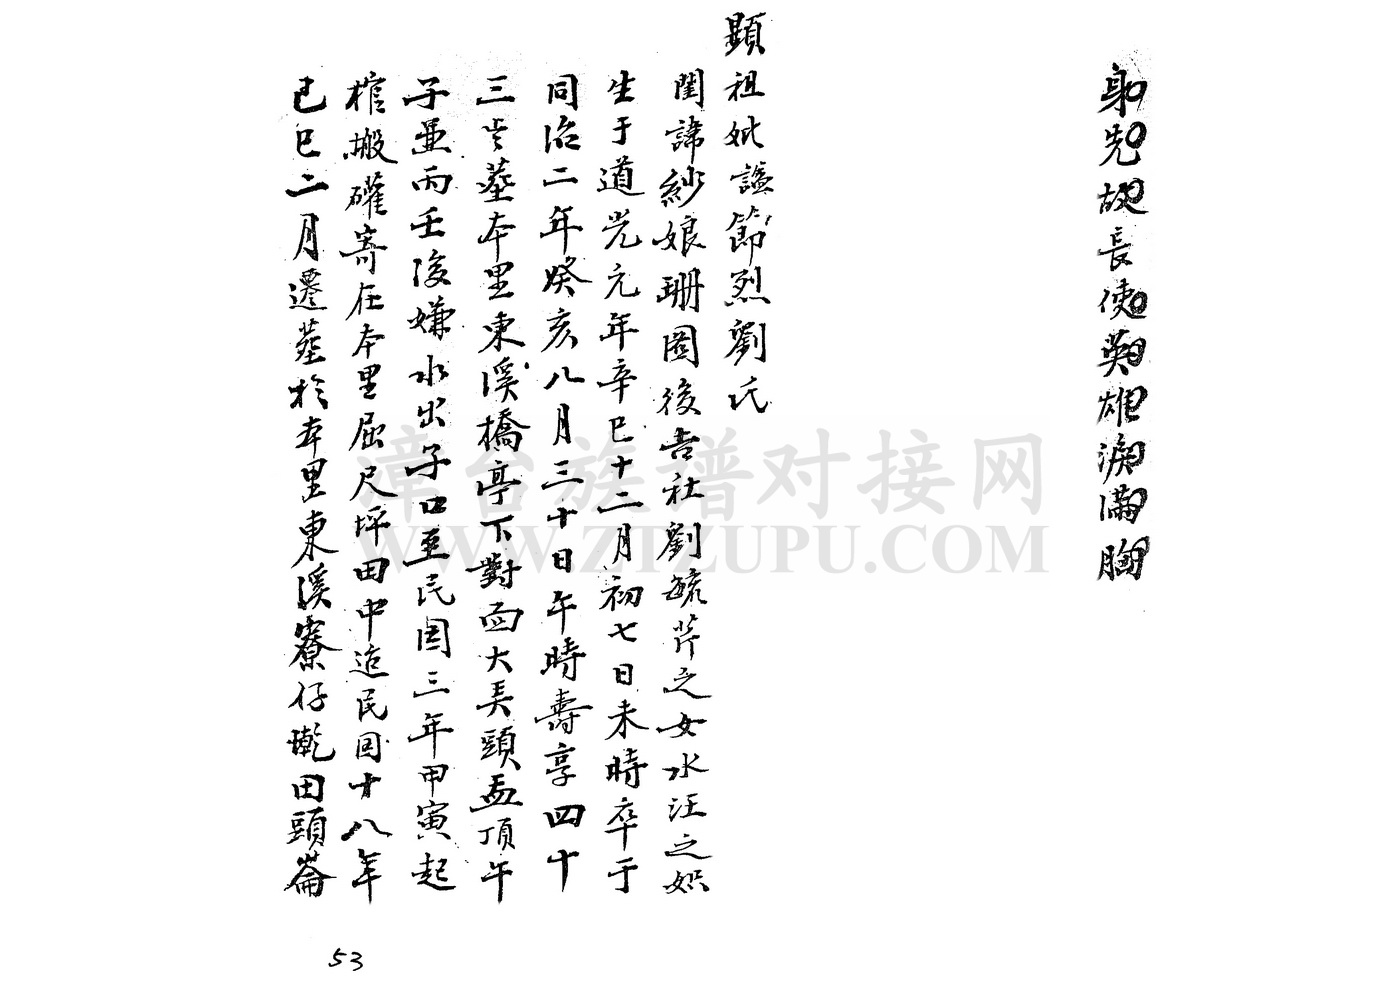 身先故長使英雄淚滿胸
顯祖妣謚節烈劉氏
閨諱紗娘珊圖後吉社劉毓芹之女水汪之娰
生于道光元年辛巳十二月初七日未時卒于
同治二年癸亥八月三十日午時壽享四十
三岁葬本里東溪橋亭下對面大吴頭孟頂午
子兼丙壬後嫌水出子口至民国三年甲寅起
棺搬礶寄在本里屈尺坪田中迨民国十八年
已巳二月遷葬於本里東溪寮仔乾田頭崙
53
漳台族谱对接网
WWW.ZTZUPU.COM